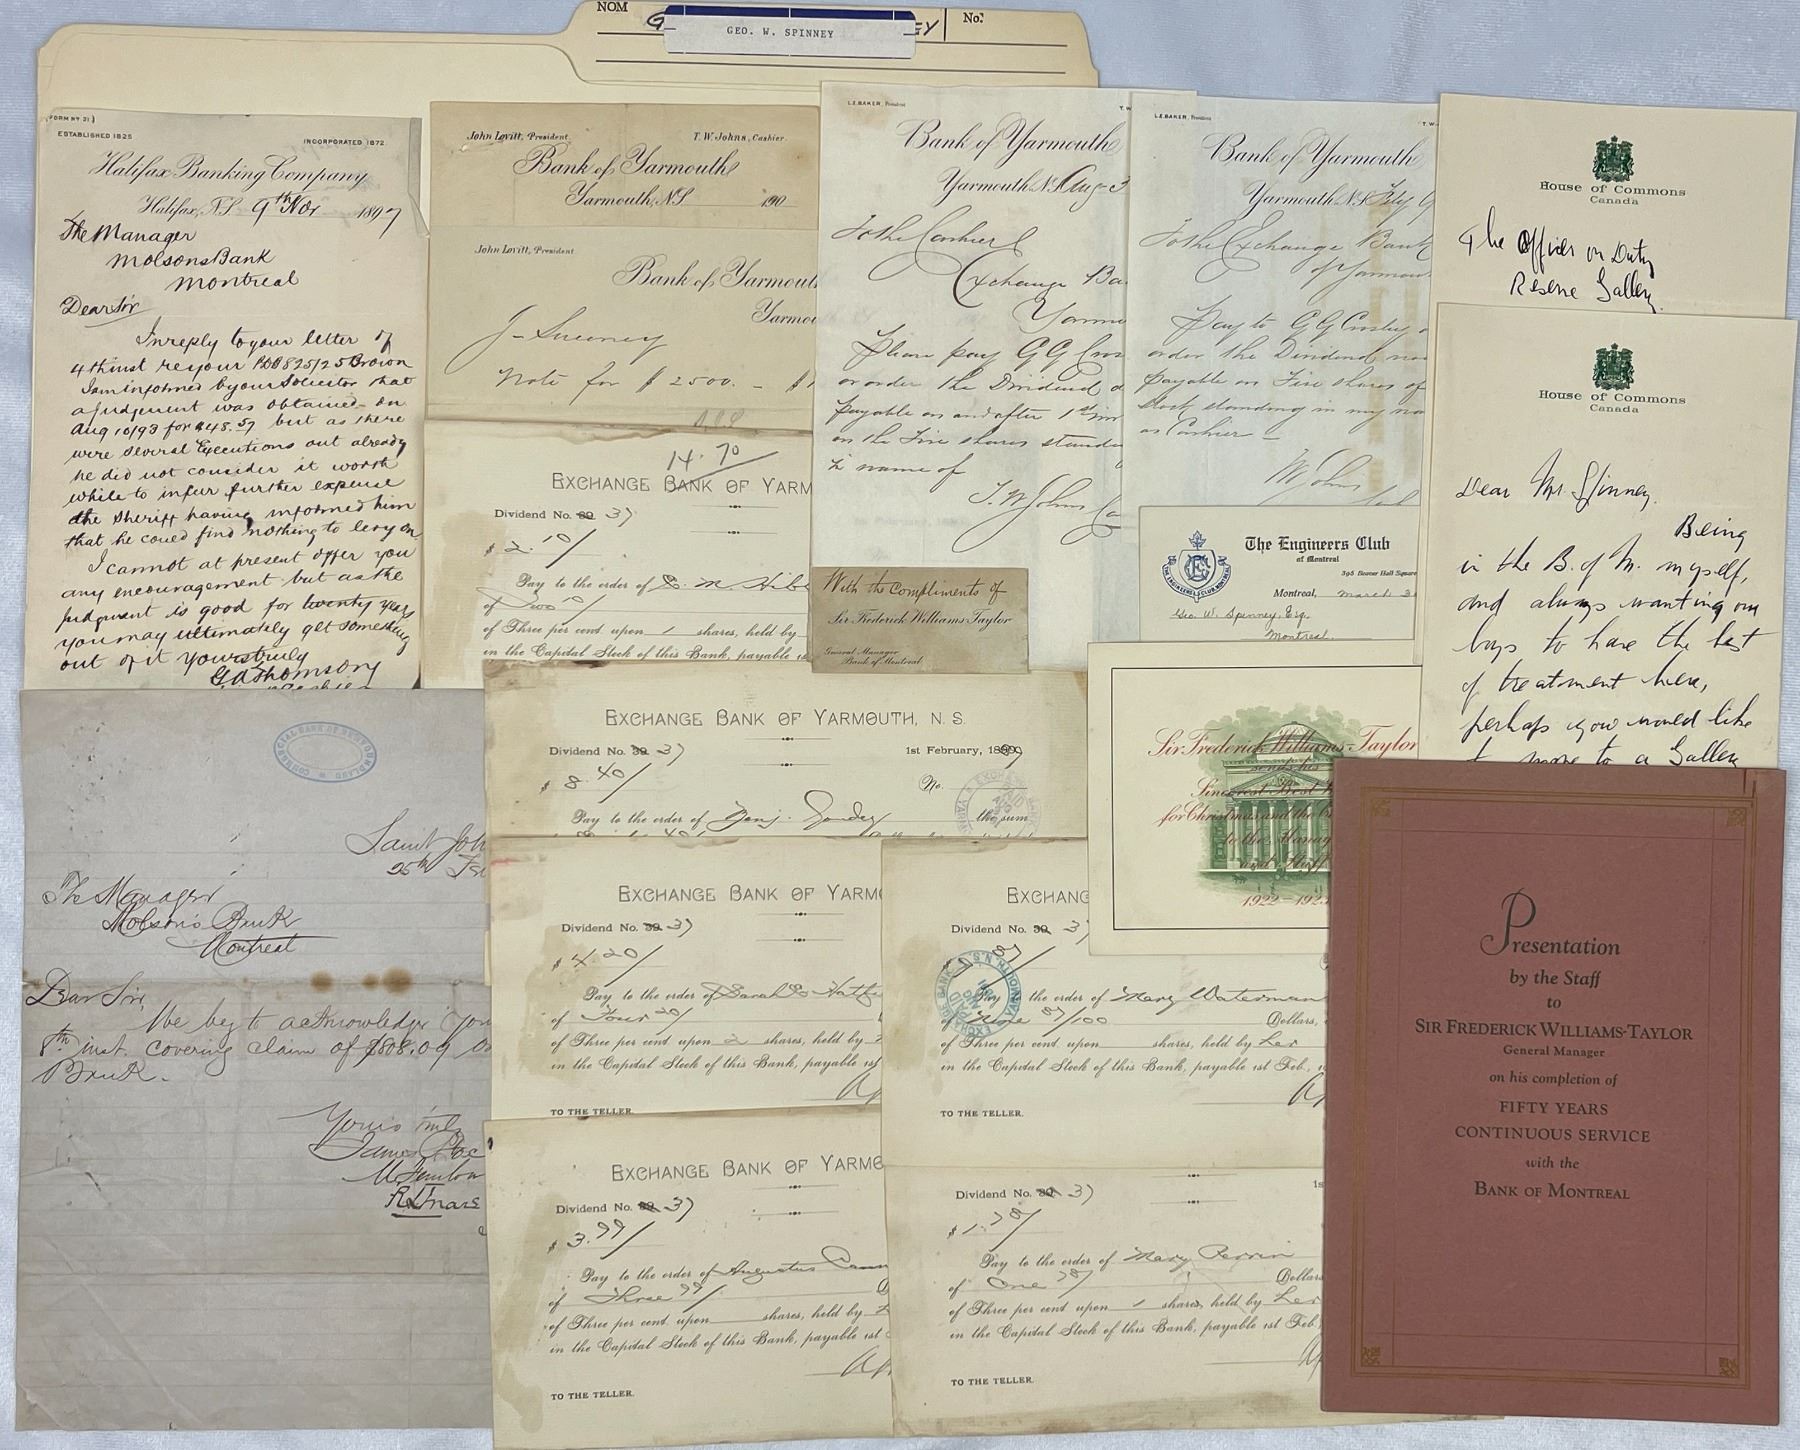 NOM
No.
GEO. W. SPINNEY
FORM Nº 21
ESTABLISHED 1825
INCORPORATED 1872
Halifax Banking Company
Halifax, N.S. 9th Nov 1897
The Manager
Molsons Bank
Montreal
Dear Sir
In reply to your letter of
4th inst re your 825/25 Brown
I am informed by your Solicitor that
a judgement was obtained on
Aug 10/93 for $48.57 but as there
were several Executions out already
he did not consider it worth
while to incur further expense
the Sheriff having informed him
that he could find nothing to levy on
I cannot at present offer you
any encouragement but as the
judgment is good for twenty years
you may ultimately get something
out of it Yours truly
John Lovitt, President.
T. W. Johns, Cashier.
Bank of Yarmouth
Yarmouth, N.S. 190
John Lovitt, President
Bank of Yarmouth
Yarmou
J Sweeney
Note for $2500. - $1
14.70
EXCHANGE BANK OF YARM
Dividend No. 39 37
$ 2.10/
Pay to the order of
of Two 10/
of Three per cent upon 1 shares, held by
in the Capital Stock of this Bank, payable 1s
L.E. BAKER, President
T. W
Bank of Yarmouth
Yarmouth N.S. Aug 3
To the Cashier
Exchange Ba
Yarmo
Please pay G G Cros
or order the Dividend d
payable on and after 1st in
on the Five shares standi
in name of
T. W Johns Ca
L.E. BAKER, President
T. W.
Bank of Yarmouth
Yarmouth N.S. Fby 9
To the Exchange Bank
of Yarmou
Pay to G G Crosby o
order the Dividend now
payable on Five shares of
stock standing in my na
as Cashier
W Johns
House of Commons
Canada
The Officer on Duty
Reserve Gallery.
House of Commons
Canada
Dear Mr. Spinney.
Being
in the B. of M. myself,
and always wanting our
boys to have the best
of treatment here,
perhaps you would like
to move to a Gallery
The Engineers Club
of Montreal
THE ENGINEERS CLUB MONTREAL
396 Beaver Hall Square
Montreal, March 3
Geo. W. Spinney, Esq.
Montreal.
With the compliments of
Sir Frederick Williams-Taylor
General Manager
Bank of Montreal
EXCHANGE BANK OF YARMOUTH, N. S.
Dividend No. 39 37
1st February, 1899
$ 8.40/
No.
Pay to the order of Benj. the sum
COMMERCIAL BANK OF NEWFOUNDLAND
Saint Joh
25th
The Manager
Molson's Bank
Montreal
Dear Sir,
We beg to acknowledge you
8th inst. covering claim of $808.09 on
Bank.
Yours truly
James
EXCHANGE BANK OF YARMO
Dividend No. 39 37
$ 4.20/
Pay to the order of Sarah E Hatfi
of Four 20/
of Three per cent upon 2 shares, held by
in the Capital Stock of this Bank, payable 1st
TO THE TELLER.
EXCHANG
Dividend No. 39 3
EXCHANGE BANK YARMOUTH, N.S.
PAID
Pay to the order of Mary Waterman
of None 87/100 Dollars,
of Three per cent. upon shares, held by her
in the Capital Stock of this Bank, payable 1st Feb.,
TO THE TELLER.
Sir Frederick Williams-Taylor
sends his
Sincerest Best
for Christmas and the
to the Manag
and Staff
1922-192
EXCHANGE BANK OF YARMO
Dividend No. 39 37
$ 3.99/
Pay to the order of Augustus Cann
of Three 99/
of Three per cent. upon shares, held by
in the Capital Stock of this Bank, payable 1st
TO THE TELLER.
Dividend No. 39 37
1s
$ 1.78/
Pay to the order of Mary Perrin
of One 78/ Dollars
of Three per cent upon 1 shares, held by her
in the Capital Stock of this Bank, payable 1st Feb.
TO THE TELLER.
Presentation
by the Staff
to
SIR FREDERICK WILLIAMS-TAYLOR
General Manager
on his completion of
FIFTY YEARS
CONTINUOUS SERVICE
with the
BANK OF MONTREAL